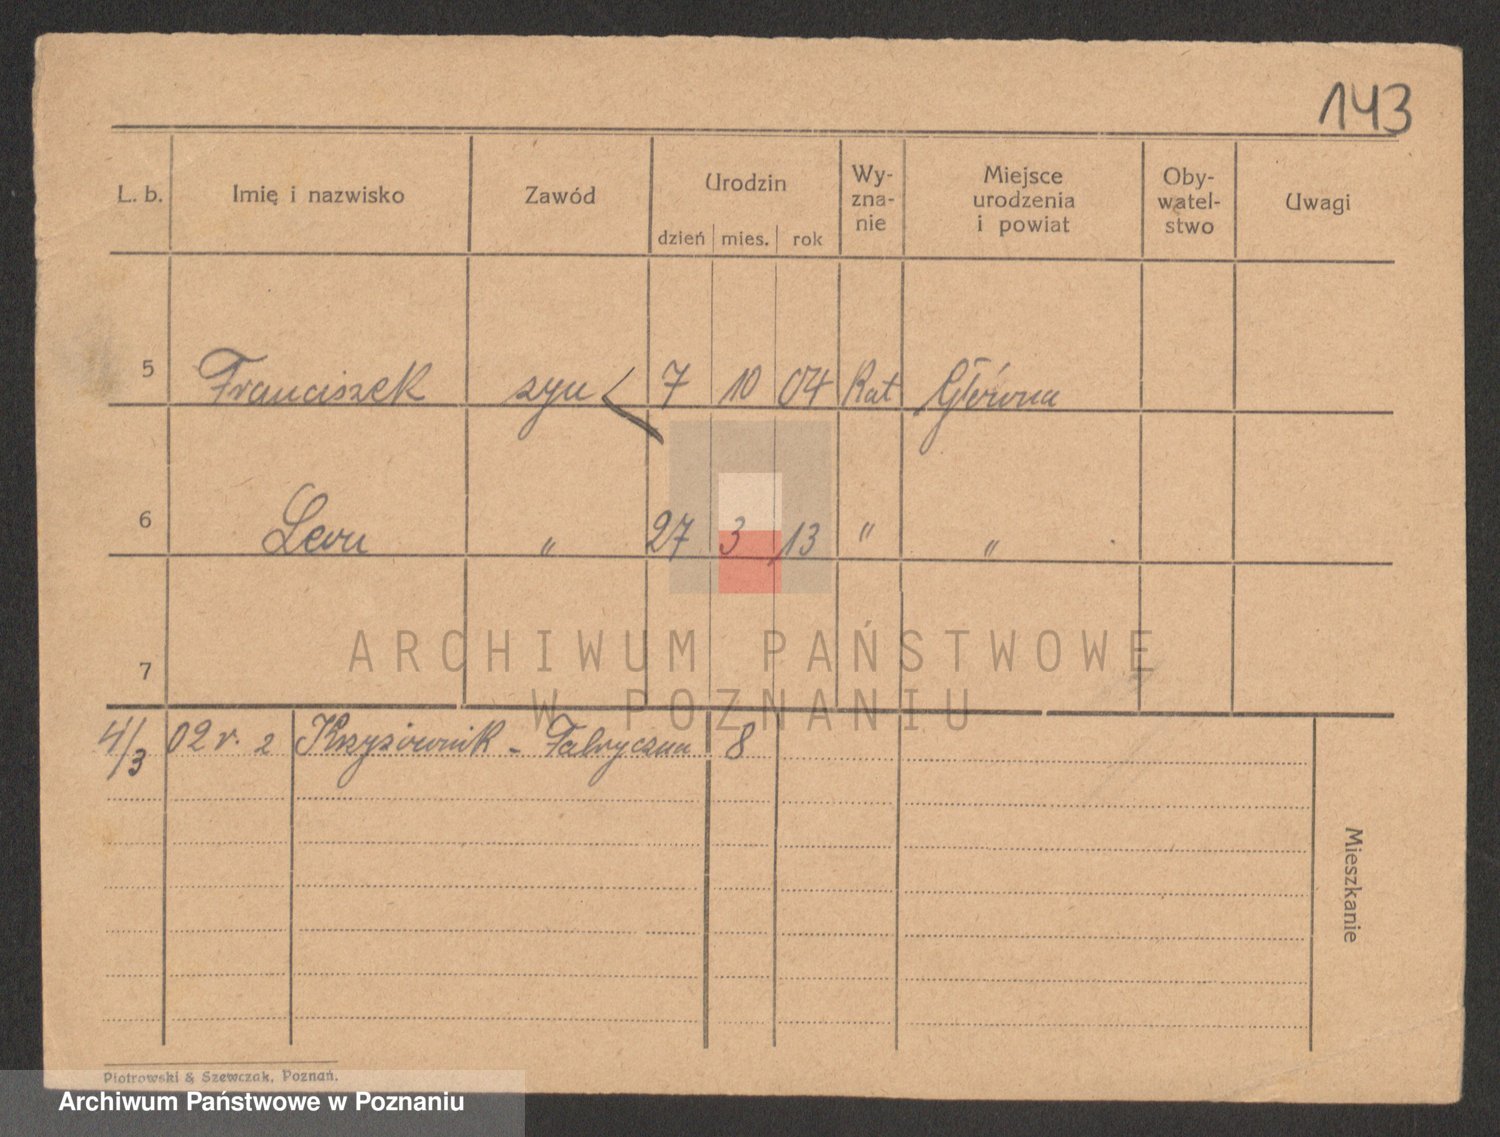 143
L. b. Imię i nazwisko Zawód Urodzin dzień mies. rok Wy-zna-nie Miejsce urodzenia i powiat Oby-watel-stwo Uwagi
5 Franciszek syn 7 10 04 Kat Główna
6 Leon " 27 3 13 " "
7
ARCHIWUM PAŃSTWOWE
W POZNANIU
4/3 02 r. z Krzyżownik - Fabryczna 8
Mieszkanie
Piotrowski & Szewczak, Poznań.
Archiwum Państwowe w Poznaniu